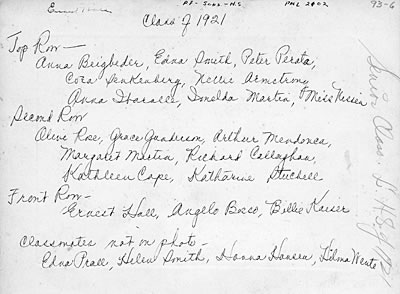 PHL 2802
93-6
Class of 1921
Top Row —
Anna Beigbeder, Edna Smith, Peter Perata,
Cora Luxenberg, Nellie Armstrong
Anna Ibaralle, Imelda Martin, Miss
Second Row
Olive Rose, Grace Gunderson, Arthur Mendonca,
Margaret Martin, Richard Callaghan,
Kathleen Cape, Katharine Stuchell
Front Row —
Ernest Hall, Angelo Bosco, Billie Kaiser
Classmates not in photo —
Edna Prall, Helen Smith, Hanna Hansen, Wilma Wente
Senior Class. L. H. S. of 1921